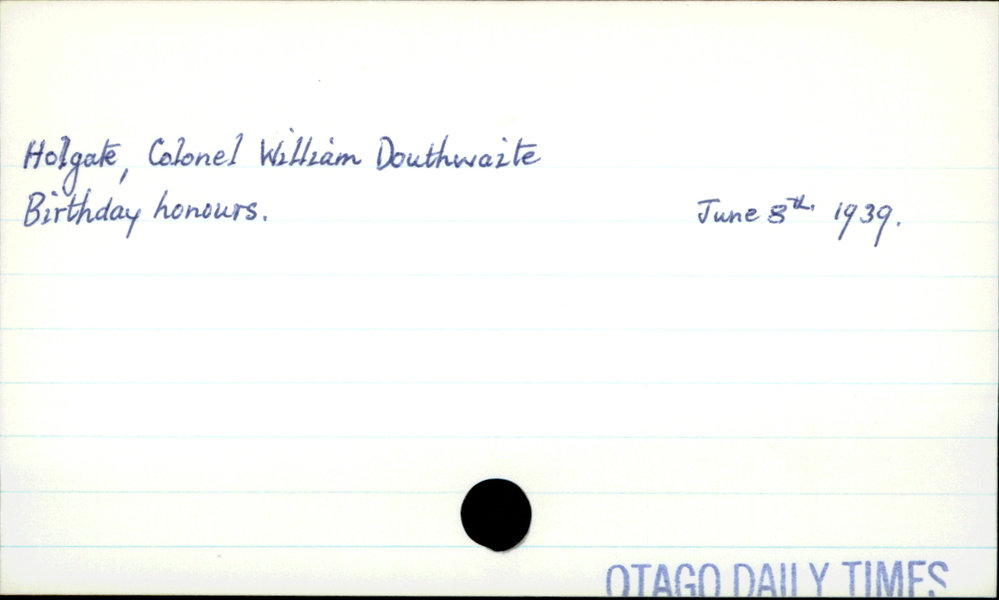 Holgate, Colonel William Douthwaite
Birthday honours. June 8th. 1939.
OTAGO DAILY TIMES